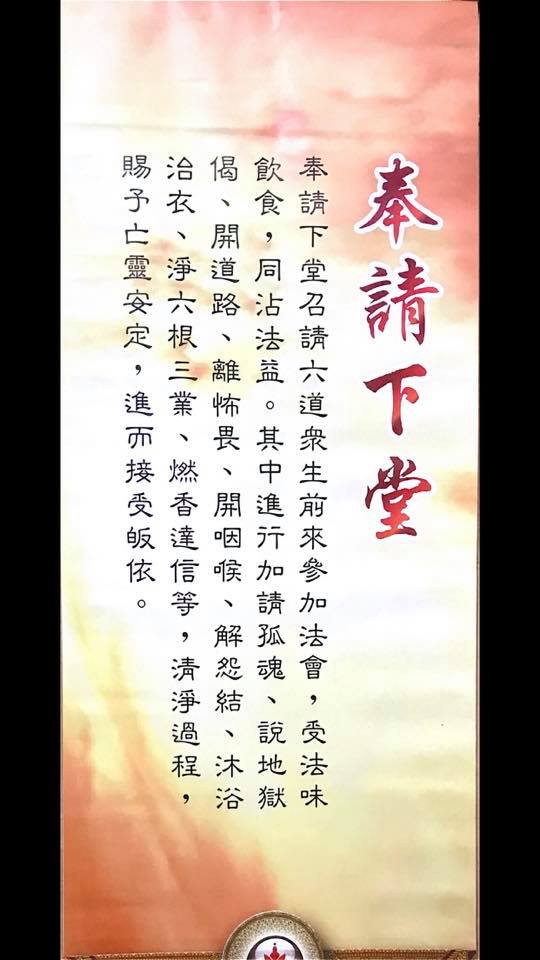 奉請下堂
奉請下堂召請六道衆生前來參加法會，受法味
飲食，同沾法益。其中進行加請孤魂、說地獄
偈、開道路、離怖畏、開咽喉、解怨結、沐浴
治衣、淨六根三業、燃香達信等，清淨過程，
賜予亡靈安定，進而接受皈依。